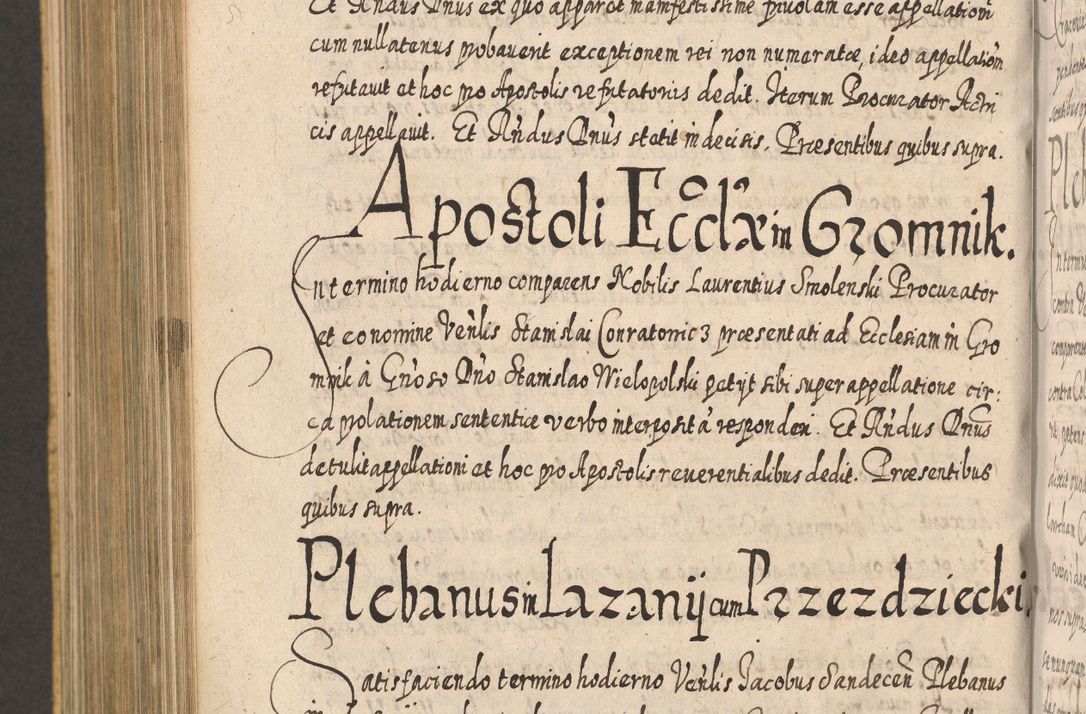 Et Andus Dnus ex quo apparet manifestissime frivolam esse appellationi
cum nullatenus probaverit exceptionem rei non numeratæ, ideo appellation
refutavit et hoc pro Apostolis refutatoriis dedit. Iterum Procurator Actri
cis appellavit. Et Andus Dnus stetit in decisis. Præsentibus quibus supra.
Apostoli Eccłæ in Gromnik.
In termino hodierno comparens Nobilis Laurentius Smolenski Procurator
et eo nomine Venlis Stanislai præsentati ad Ecclesiam in Gro
mnik à Gnoso Dno Stanislao Wielopolski petijt sibi super appellatione cir:
ca prolationem sententiæ verbo interposità responderi. Et Andus Dnus
detulit appellationi et hoc pro Apostolis reverentialibus dedit. Præsentibus
quibus supra.
Plebanus in Lazanÿ cum Przezdziecki
Satisfaciendo termino hodierno Venlis Jacobus Sandecen Plebanus